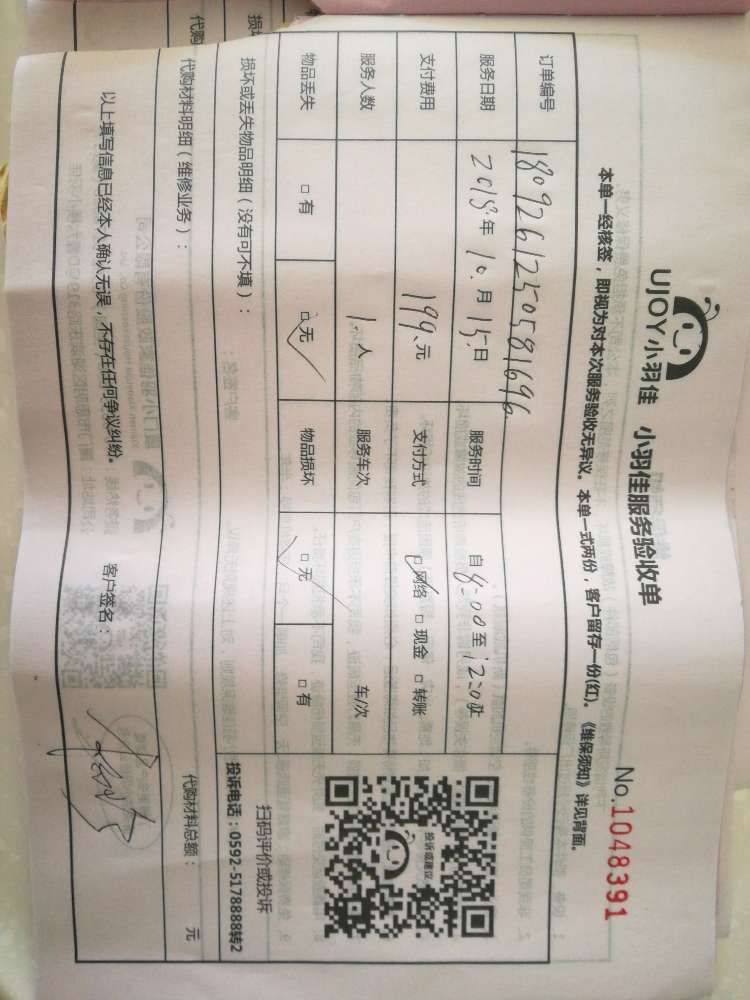 UJOY小羽佳 小羽佳服务验收单
No.1048391
本单一经核签，即视为对本次服务验收无异议。本单一式两份，客户留存一份(红)。《维保须知》详见背面。
订单编号 1809261250581696
服务日期 2018年10月15日 服务时间 自8:00至12:00止
支付费用 199元 支付方式 □网络 □现金 □转账
服务人数 1人 服务车次 车/次
物品丢失 □有 □无 物品损坏 □无 □有
投诉或建议
扫码评价或投诉
投诉电话：0592-5178888转2
损坏或丢失物品明细（没有可不填）：
代购材料明细（维修业务）： 代购材料总额： 元
以上填写信息已经本人确认无误，不存在任何争议纠纷。 客户签名：
损坏
代购